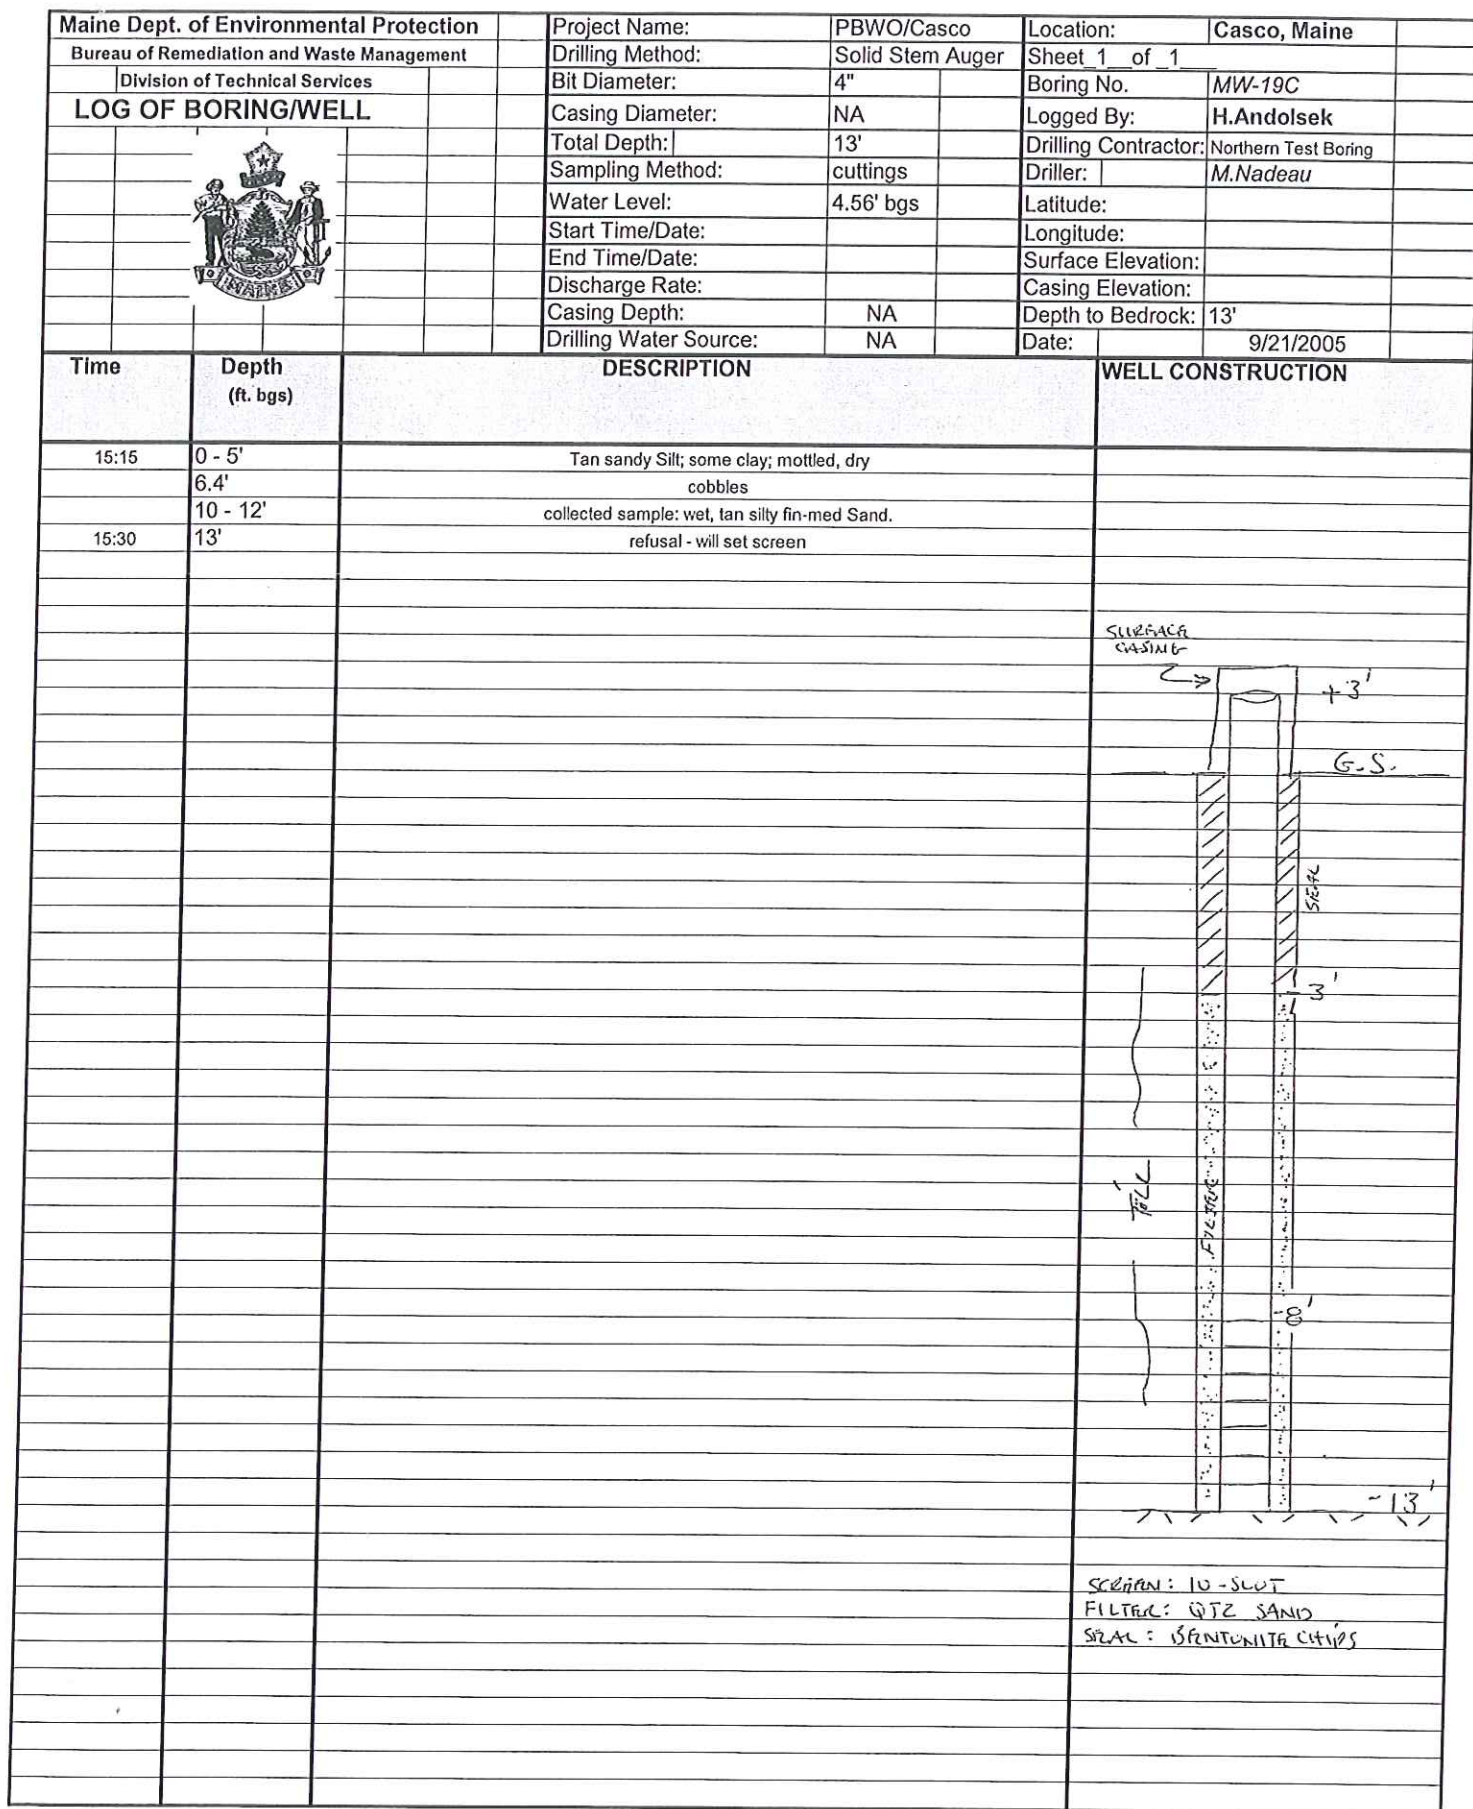 Maine Dept. of Environmental Protection
Bureau of Remediation and Waste Management
Division of Technical Services
LOG OF BORING/WELL
MAINE
Project Name: PBWO/Casco
Drilling Method: Solid Stem Auger
Bit Diameter: 4"
Casing Diameter: NA
Total Depth: 13'
Sampling Method: cuttings
Water Level: 4.56' bgs
Start Time/Date:
End Time/Date:
Discharge Rate:
Casing Depth: NA
Drilling Water Source: NA
Location: Casco, Maine
Sheet_1__of _1___
Boring No. MW-19C
Logged By: H.Andolsek
Drilling Contractor: Northern Test Boring
Driller: M.Nadeau
Latitude:
Longitude:
Surface Elevation:
Casing Elevation:
Depth to Bedrock: 13'
Date: 9/21/2005
Time Depth DESCRIPTION WELL CONSTRUCTION
(ft. bgs)
15:15 0 - 5' Tan sandy Silt; some clay; mottled, dry
6.4' cobbles
10 - 12' collected sample: wet, tan silty fin-med Sand.
15:30 13' refusal - will set screen
SURFACE
CASING
+3'
G.S.
SEAL
-3'
TILL
FILTER
-8'
-13'
SCREEN: 10-SLOT
FILTER: QTZ SAND
SEAL: BENTONITE CHIPS